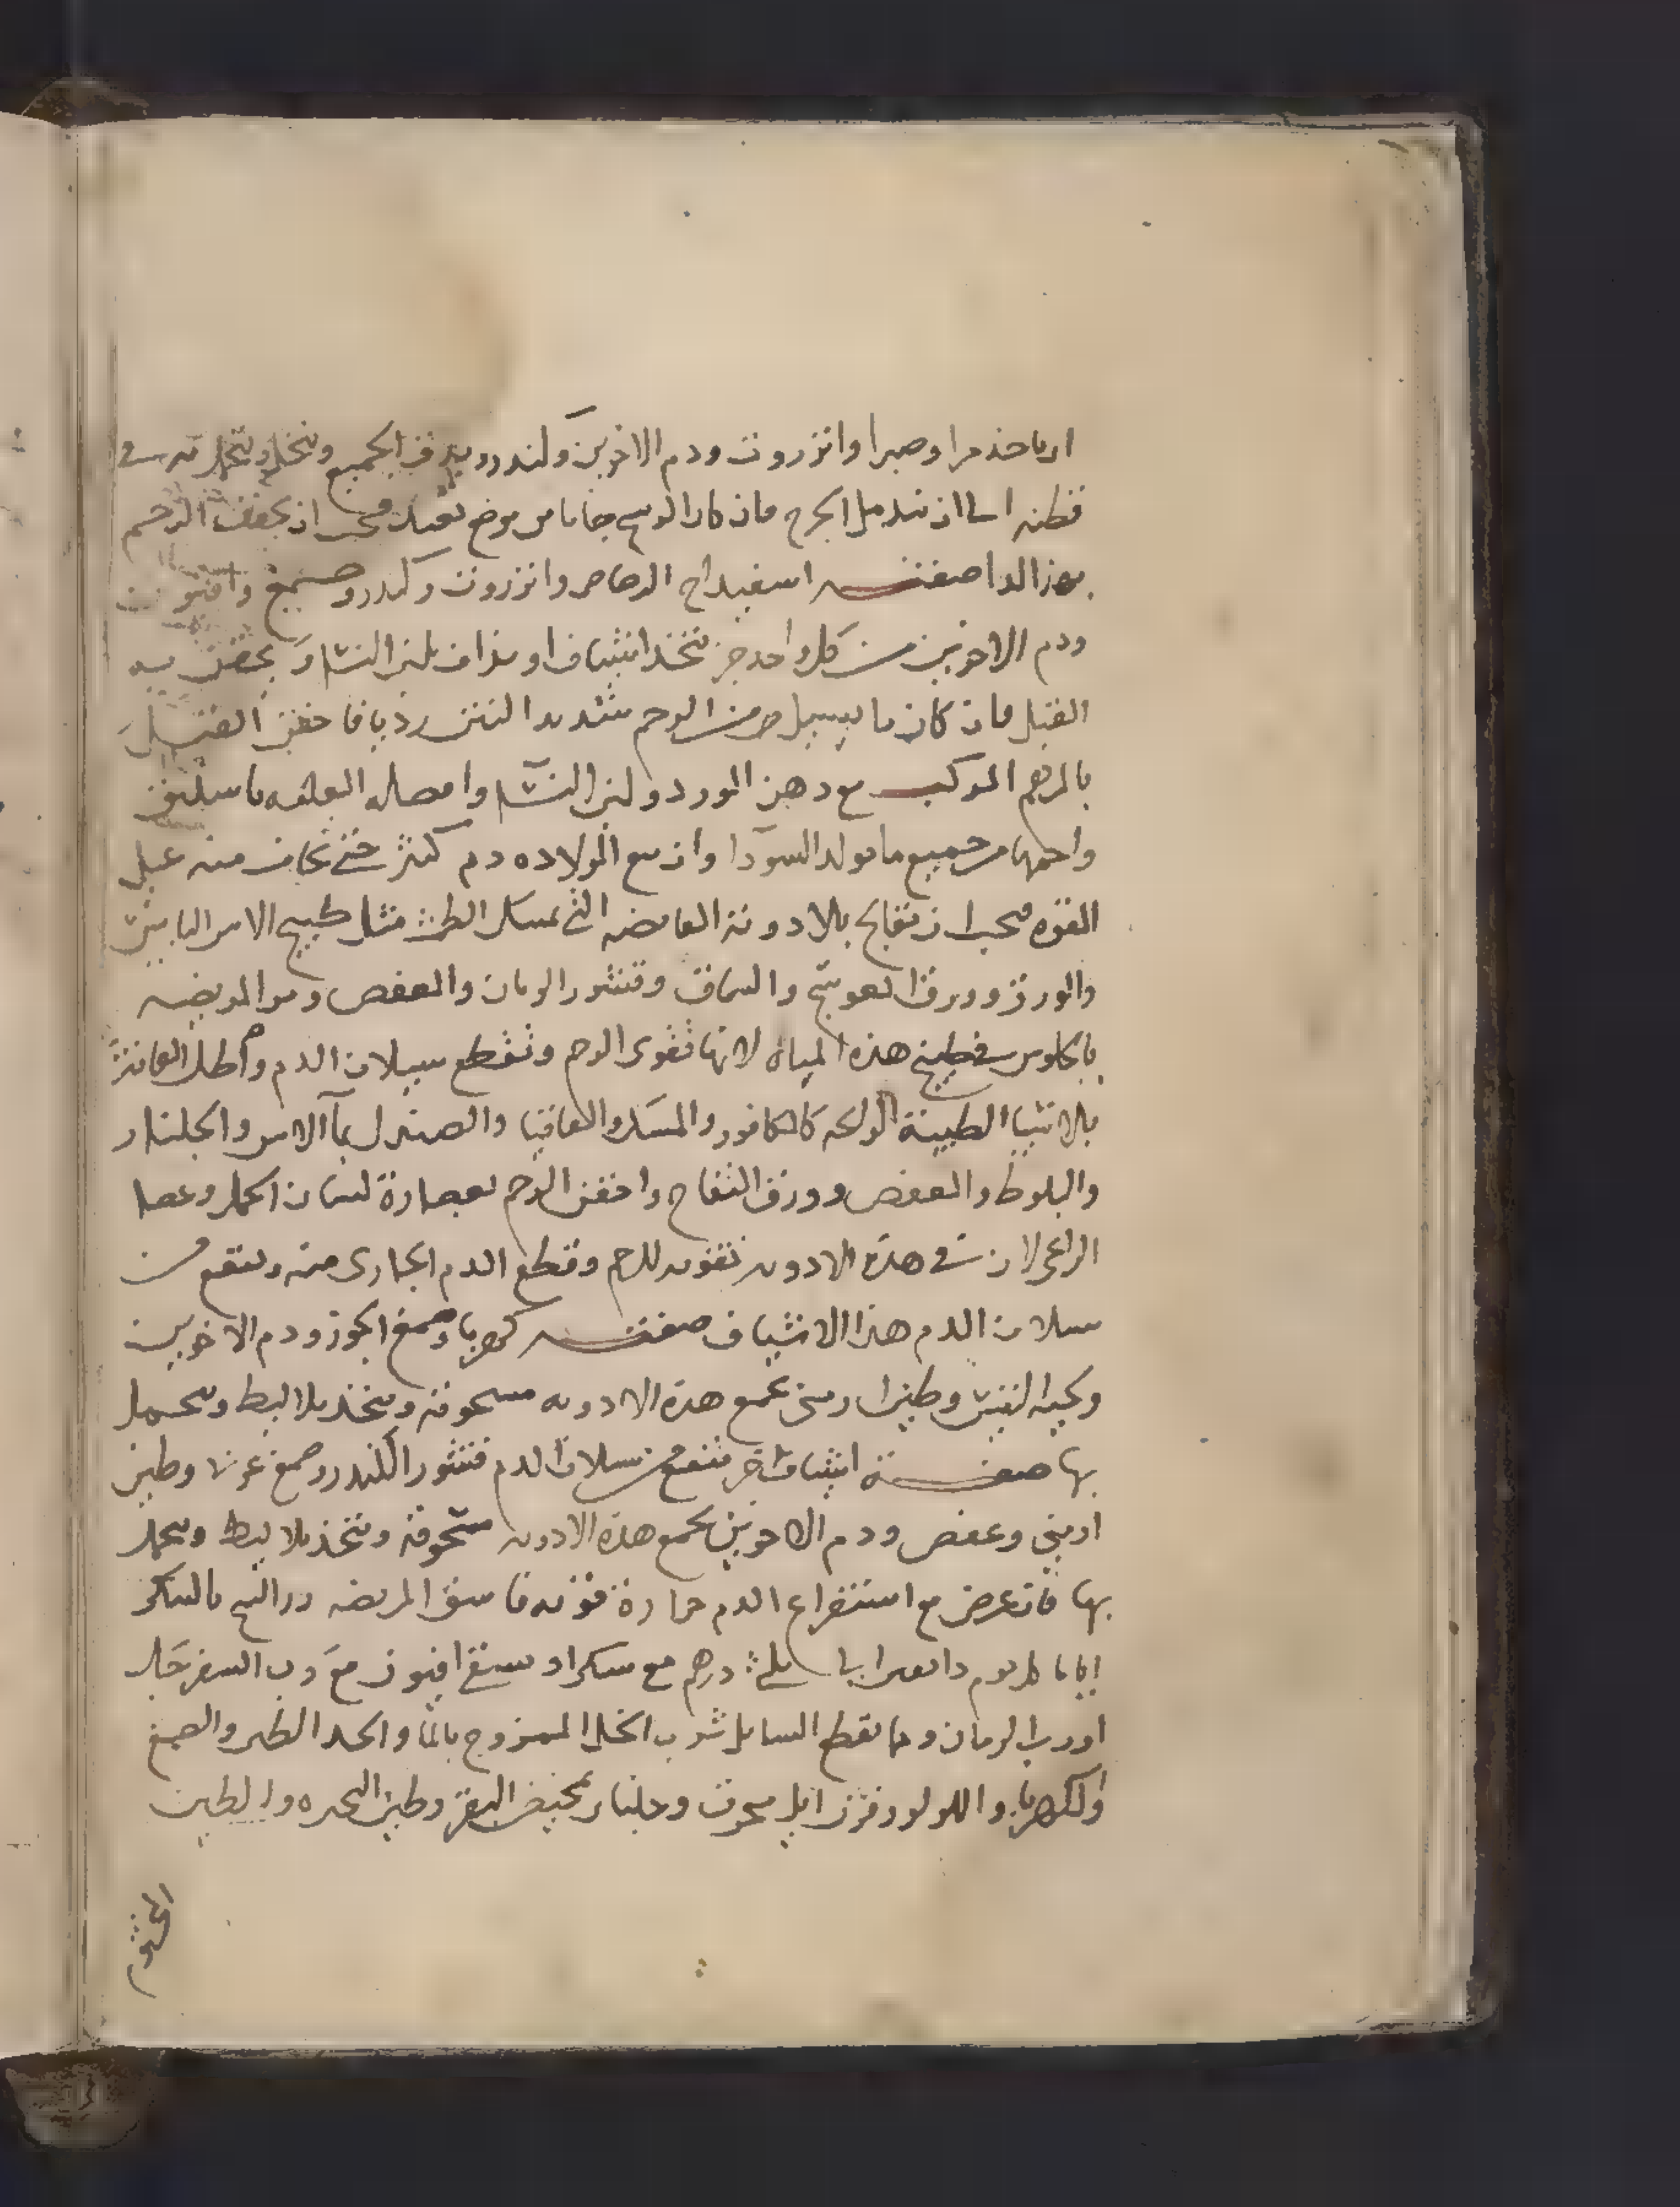 او ياخذ مرا وصبرا وانزروت ودم الاخوين وكندر ويدق الجميع وينخل ويتحمل به في
قطنه الى ان يندمل الجرح فان كان الوسخ جايا من موضع فيجب ان يحقن الرحم
بهذا الدوا صفته اسفيداج الرصاص وانزروت وكندر وصمغ وافيون
ودم الاخوين من كل واحد جز يتخذ اشياف او يذاف بلبن النسا ويحقن به
القبل فان كان ما يسيل من الرحم شديد النتن رديا فاحقن القبل
بالمرهم المركب مع دهن الورد ولبن النسا
واحمها من جميع ما يولد السودا وان مع الولاده دم كثير حتى يخاف منه على
القوه فيجب ان تعالج بالادوية القابضه التي تمسك الطمث مثل طبيخ الاس اليابس
والورد وورق العوسج والسماق وقشور الرمان والعفص ومر المريضه
بالجلوس في طبيخ هذه المياه لانها تقوى الرحم وتقطع سيلان الدم واطل العانة
بالاشيا الطيبة الرايحه كالكافور والمسك والقاقيا والصندل بما الاس والجلنار
والبلوط والعفص وورق التفاح واحقن الرحم بعصارة لسان الحمل وعصا
الراعى لان في هذه الادويه تقويه للرحم وقطع الدم الجارى منه وينفع من
سيلان الدم هذا الاشياف صفته كهربا وصمغ الجوز ودم الاخوين
ولحيه التيس وطين ارمنى تجمع هذه الادويه مسحوقة ويتخذ بلاليط ويتحمل
بها صفة اشياف اخر ينفع من سيلان الدم قشور الكندر وصمغ عربى وطين
ارمينى وعفص ودم الاخوين تجمع هذه الادويه مسحوقة ويتخذ بلاليط ويتحمل
بها فان عرض مع استفراغ الدم حرارة قويه فاسق المريضه بالسكر
اياما كل يوم درهم مع سكر او يسقى افيون مع رب السفرجل
او رب الرمان ومما يقطع السايل شرب الخل الممزوج بالما والصمغ
والكهربا واللولو وقرن ايل محرق وجلنار بمخيض البقر وطين البحيره والطين
المختوم